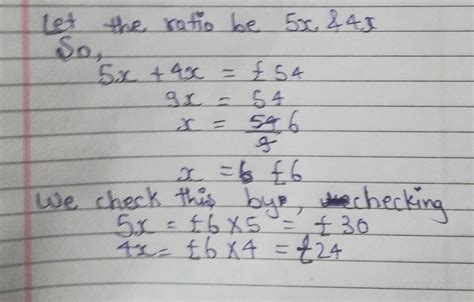 Let the ratio be 5x & 4x
So,
5x + 4x = £54
9x = 54
x = 54/9 6
x = £6
We check this by, checking
5x = £6 x 5 = £30
4x = £6 x 4 = £24